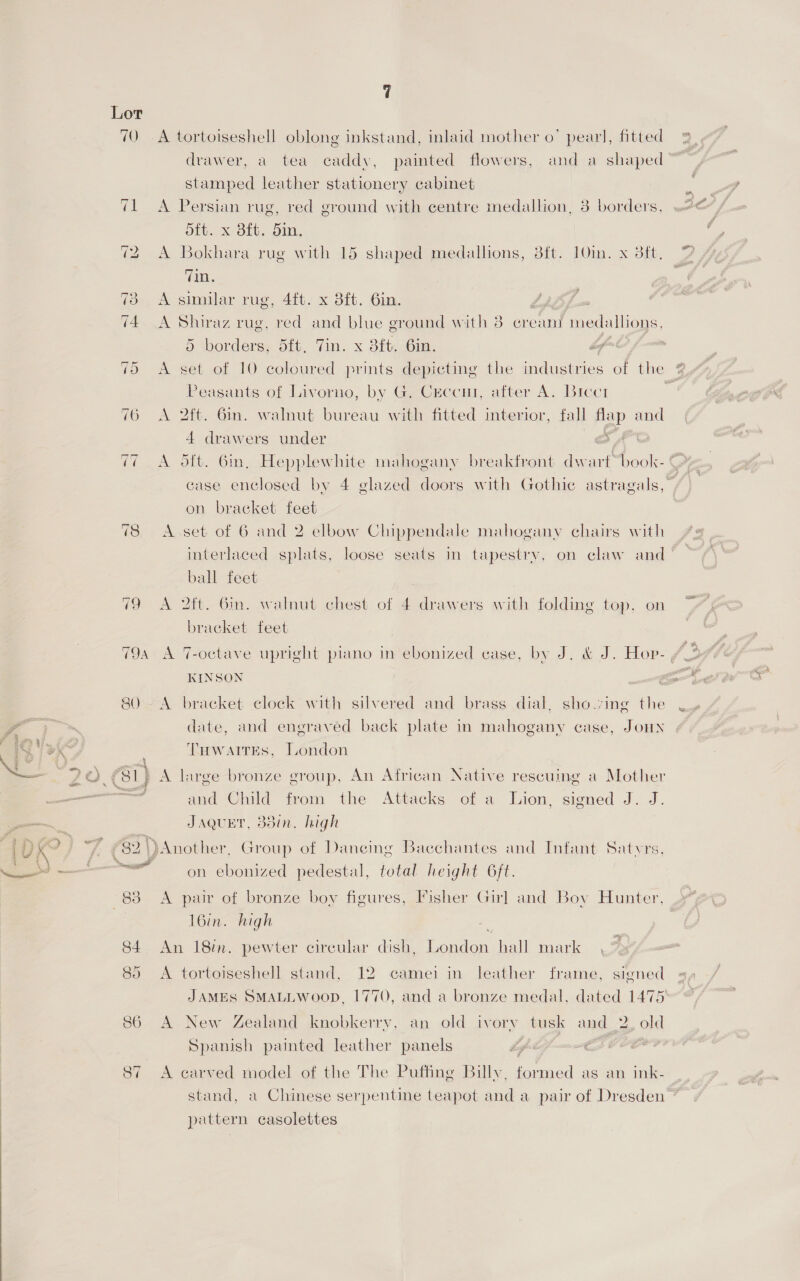 7
Lot
70 A tortoiseshell oblong inkstand, inlaid mother o' pearl, fitted
drawer, a tea caddy, painted flowers, and a shaped
stamped leather stationery cabinet
71 A Persian rug, red ground with centre medallion, 3 borders,
5ft. x 3ft. 5in.
72 A Bokhara rug with 15 shaped medallions, 3ft. 10in. x 3ft.
7in.
73 A similar rug, 4ft. x 3ft. 6in.
74 A Shiraz rug, red and blue ground with 3 cream medallions,
5 borders, 5ft. 7in. x 3ft. 6in.
75 A set of 10 coloured prints depicting the industries of the
Peasants of Livorno, by G. Cecchi, after A. Bicci
76 A 2ft. 6in. walnut bureau with fitted interior, fall flap and
4 drawers under
77 A 5ft. 6in. Hepplewhite mahogany breakfront dwarf book-
case enclosed by 4 glazed doors with Gothic astragals,
on bracket feet
78 A set of 6 and 2 elbow Chippendale mahogany chairs with
interlaced splats, loose seats in tapestry, on claw and
ball feet
79 A 2ft. 6in. walnut chest of 4 drawers with folding top, on
bracket feet
79A A 7-octave upright piano in ebonized case, by J. & J. Hop-
kinson
80 A bracket clock with silvered and brass dial, showing the
date, and engraved back plate in mahogany case, John
Thwaites, London
81 A large bronze group, An African Native rescuing a Mother
and Child from the Attacks of a Lion, signed J. J.
Jaquet, 33in. high
82 Another, Group of Dancing Bacchantes and Infant Satyrs,
on ebonized pedestal, total height 6ft.
83 A pair of bronze boy figures, Fisher Girl and Boy Hunter,
16in. high
84 An 18in. pewter circular dish, London hall mark
85 A tortoiseshell stand, 12 camei in leather frame, signed
James Smallwood, 1770, and a bronze medal, dated 1475
86 A New Zealand knobkerry, an old ivory tusk and 2 old
Spanish painted leather panels
87 A carved model of the The Puffing Billy, formed as an ink-
stand, a Chinese serpentine teapot and a pair of Dresden
pattern casolettes